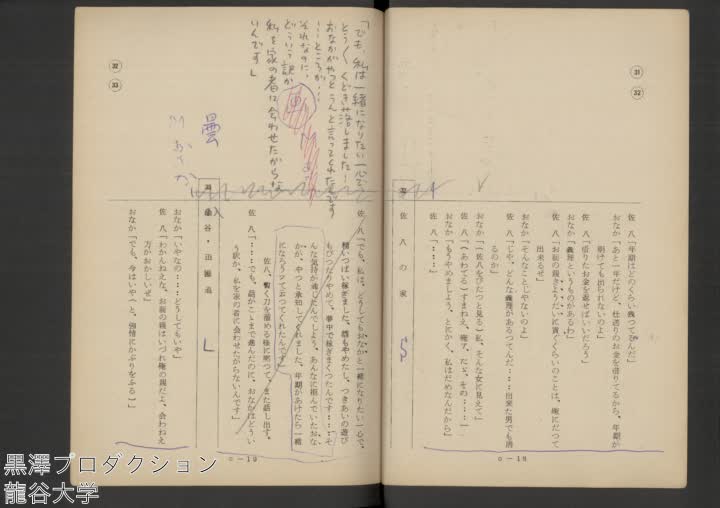 31
32
佐八の家
佐八「年期はどのくらい残つてるんだ」
おなか「あと一年だけど、仕送りのお金を借りてるから、年期が
明けても出られないのよ」
佐八「借りたお金を返せばいいだろう」
おなか「義理というものがあるわ」
佐八「お前の親きようだいに貢ぐくらいのことは、俺にだつて
出来るぜ」
おなか「そんなことじやないのよ」
佐八「じや、どんな義理があるつてんだ……出来た男でも居
るのか」
おなか「(佐八をぴたつと見る)私、そんな女に見えて」
佐八「(あわてる)すまねえ、俺ァ、たゞ、その……」
おなか「もうやめましよう、とにかく、私はだめなんだから」
佐八「……」
5
c-18
32
33
「でも、私は一緒になりたい一心で、
とうくくどき落しました!
おなかがやつとうんと言つてくれたんです
…ところが…
それなのに、
どういう訳か
私を家の者に会わせたがらな
いんです」
佐八「でも、私は、どうしてもおなかと一緒になりたい一心で、
精いつぱい稼ぎました。酒もやめたし、つきあいの遊び
もぴつたりやめて、夢中で稼ぎまくつたんです……そ
んな気持が通じたんでしよう、あんなに拒んでいたおな
かが、やつと承知してくれました、年期があけたら一緒
になろうつて云つてくれたんです」
佐八、暫く刀を溜める様に黙つて、また話し出す。
佐八「……でも、話がここまで進んだのに、おなかはどうい
う訳か、私を家の者に会わせたがらないんです」
曇
入
L
おなか「いやなの……どうしてもいや」
佐八「わかんねえな、お前の親はいづれ俺の親だよ、会わねえ
方がおかしいぜ」
おなか「でも、今はいや(と、強情にかぶりをふる)」
c-19
黒澤プロダクション
龍谷大学